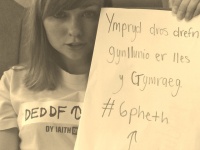 Ympryd dros drefn
gynllunio er lles
y Gymraeg
#6pheth
↑
DEDDF
IAITH